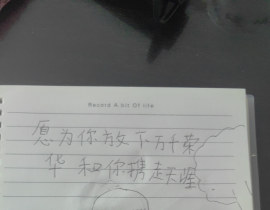 Record A bit Of life
愿为你放下万千荣
华 和你携走天涯